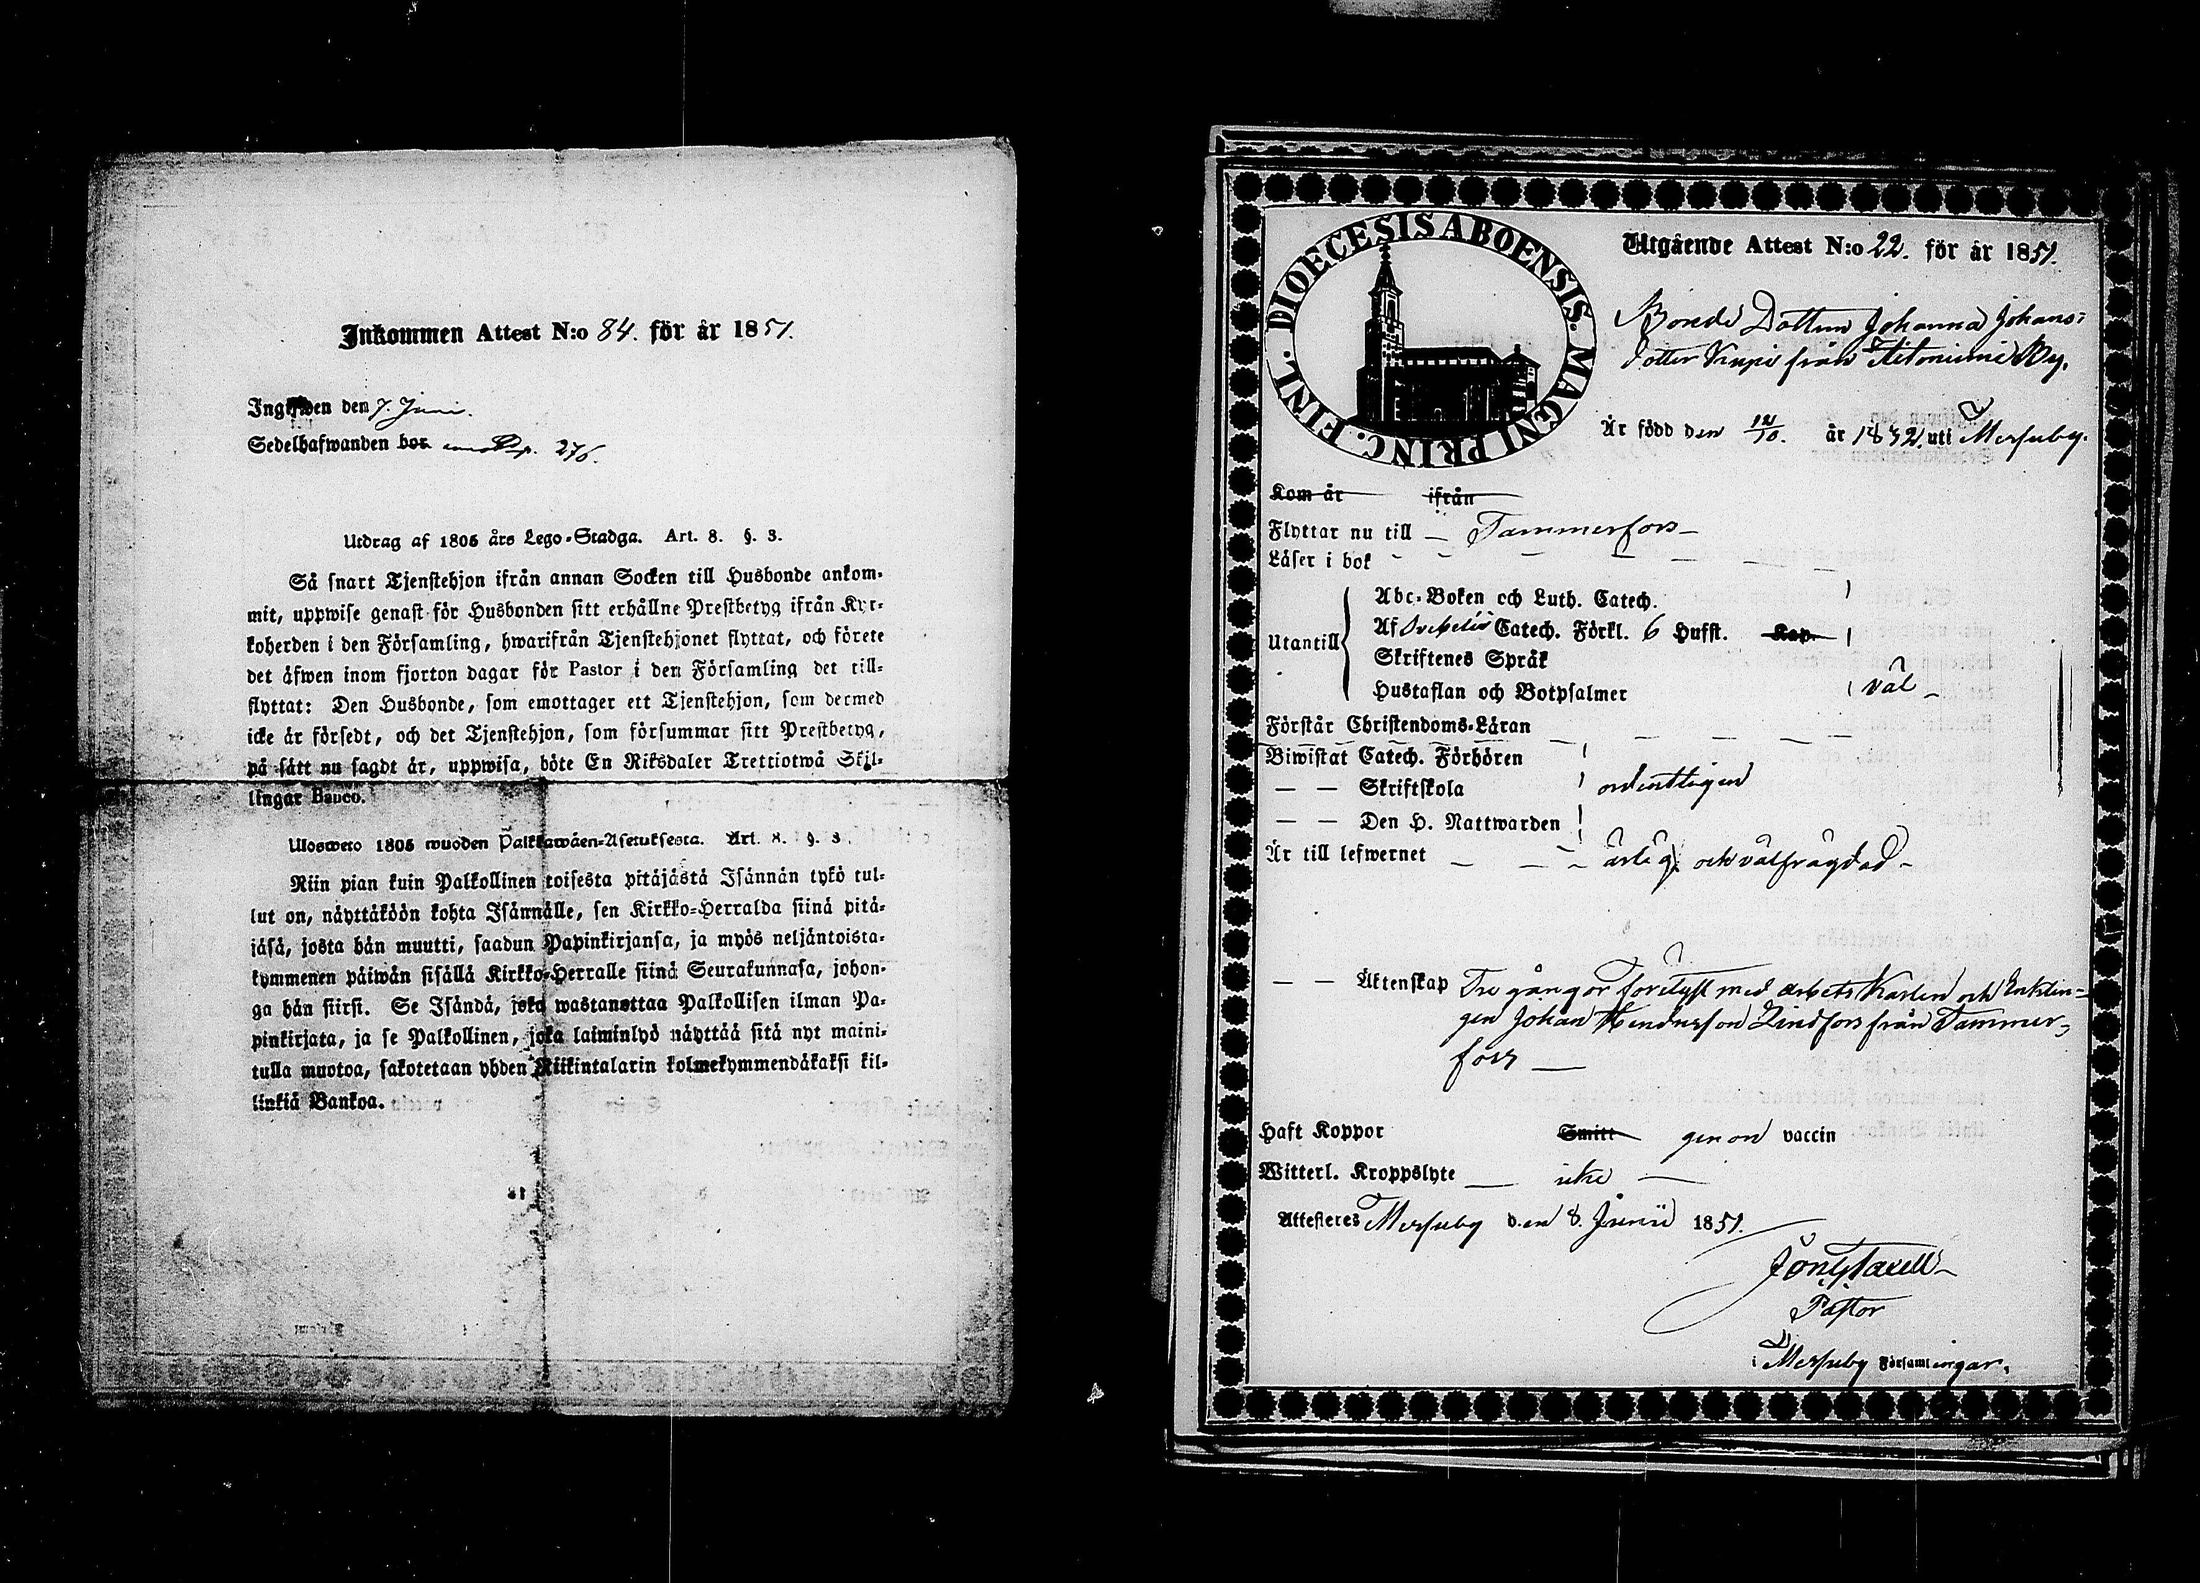 Inkommen Attest N:o 84. för år 1851.
Ingifwen den 7. Juni.
Sedelhafwanden bor p. 276.
Utdrag af 1805 års Lego-Stadga. Art. 8. §. 3.
Så snart Tjenstehjon ifrån annan Socken till Husbonde ankom-
mit, uppwise genast för Husbonden sitt erhållne Prestbetyg ifrån Kyr-
koherden i den Församling, hwarifrån Tjenstehjonet flyttat, och förete
det äfwen inom fjorton dagar för Pastor i den Församling det till-
flyttat: Den Husbonde, som emottager ett Tjenstehjon, som dermed
icke är försedt, och det Tjenstehjon, som försummar sitt Prestbetyg,
på sätt nu sagdt är, uppwisa, böte En Riksdaler Trettiotwå Skil-
lingar Banco.
Ulosweto 1805 wuoden Palkkawäen-Asetuksesta. Art. 8. §. 3.
Niin pian kuin Palkollinen toisesta pitäjästä Isännän tykö tul-
lut on, näyttäköön kohta Isännälle, sen Kirkko-Herralda siinä pitä-
jäsä, josta hän muutti, saadun Papinkirjansa, ja myös neljäntoista-
kymmenen päiwän sisällä Kirkko-Herralle siinä Seurakunnasa, johon-
ga hän siirsi. Se Isändä, joka wastanottaa Palkollisen ilman Pa-
pinkirjata, ja se Palkollinen, joka laiminlyö näyttää sitä nyt maini-
tulla muotoa, sakotetaan yhden Riikintalarin kolmekymmendäkaksi kil-
linkiä Bankoa.
DIOECESIS ABOENSIS. MAGNI PRINC. FINL.
Utgående Attest N:o 22. för år 1851.
Bonde Dottren Johanna Johans-
dotter Knupi från Hitoniemi By.
Är född den 12/10. år 1832 uti Messuby.
Kom år ifrån
Flyttar nu till — Tammerfors —
Läser i bok
Abc-Boken och Luth. Catech.
Utantill Af Svebelii Catech. Förkl. 6 Hufst. Kap.
Skriftenes Språk
Hustaflan och Botpsalmer väl —
Förstår Christendoms-Läran
Biwistat Catech. Förhören
— — Skriftskola ordentligen
— — Den H. Nattwarden
Är till lefwernet — — — ärlig och välfrägdad —
— — Äktenskap Tre gångor förelyst med arbets Karlen och Enklin-
gen Johan Hendersson Lindfors från Tammer-
fors —
Haft Koppor Smitt genom vaccin
Witterl. Kroppslyte — icke —
Attesteres Messuby den 8. Junii 1851.
Pastor
i Messuby Församlingar.